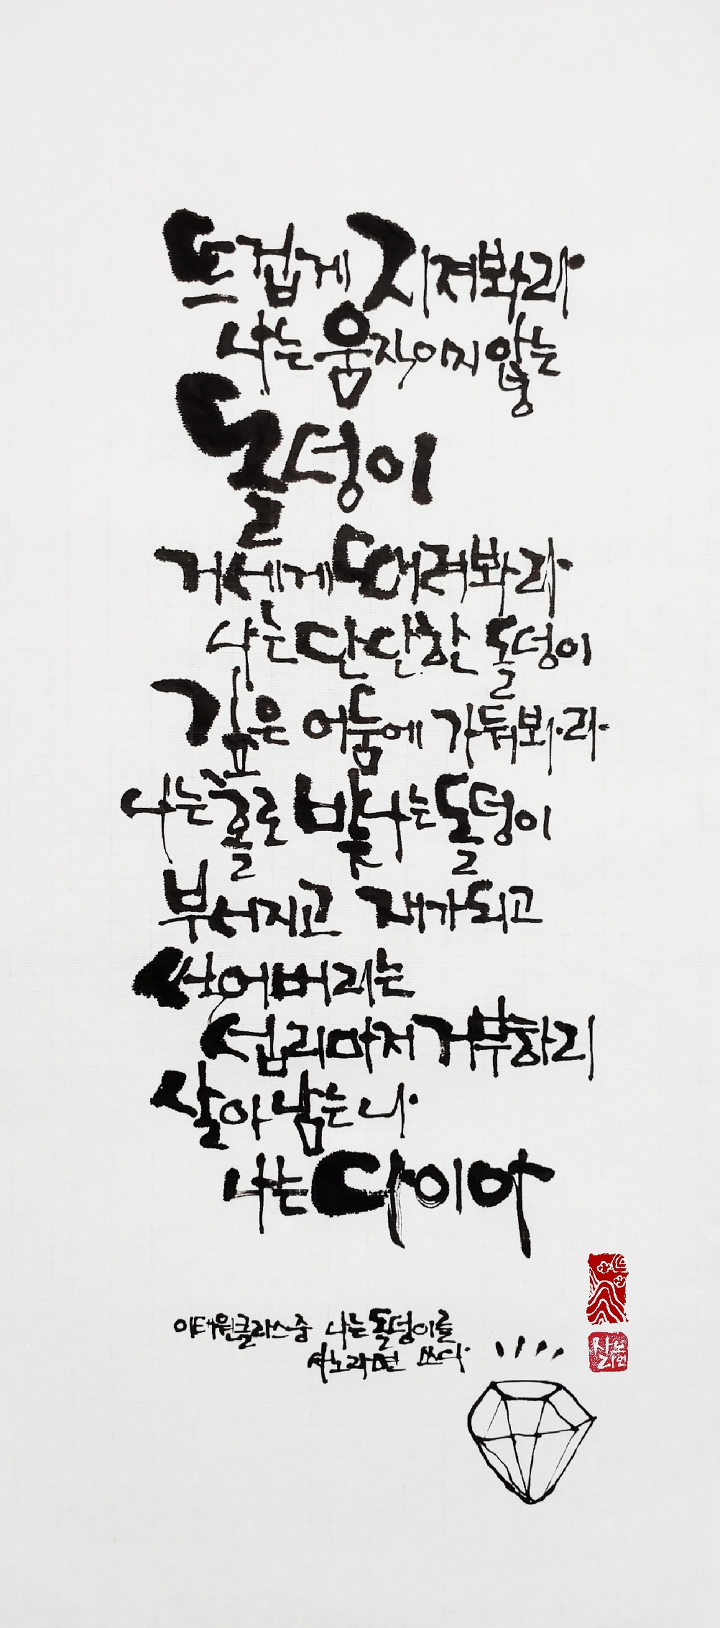 뜨겁게 지져봐라
나는 움직이지 않는
돌덩이
거세게 때려봐라
나는 단단한 돌덩이
깊은 어둠에 가둬봐라
나는 홀로 빛나는 돌덩이
부서지고 재가되고
썩어버리는
섭리마저 거부하리
살아남는 나
나는 다이아
이태원클라스 중 나는 돌덩이를
사노라면 쓰다